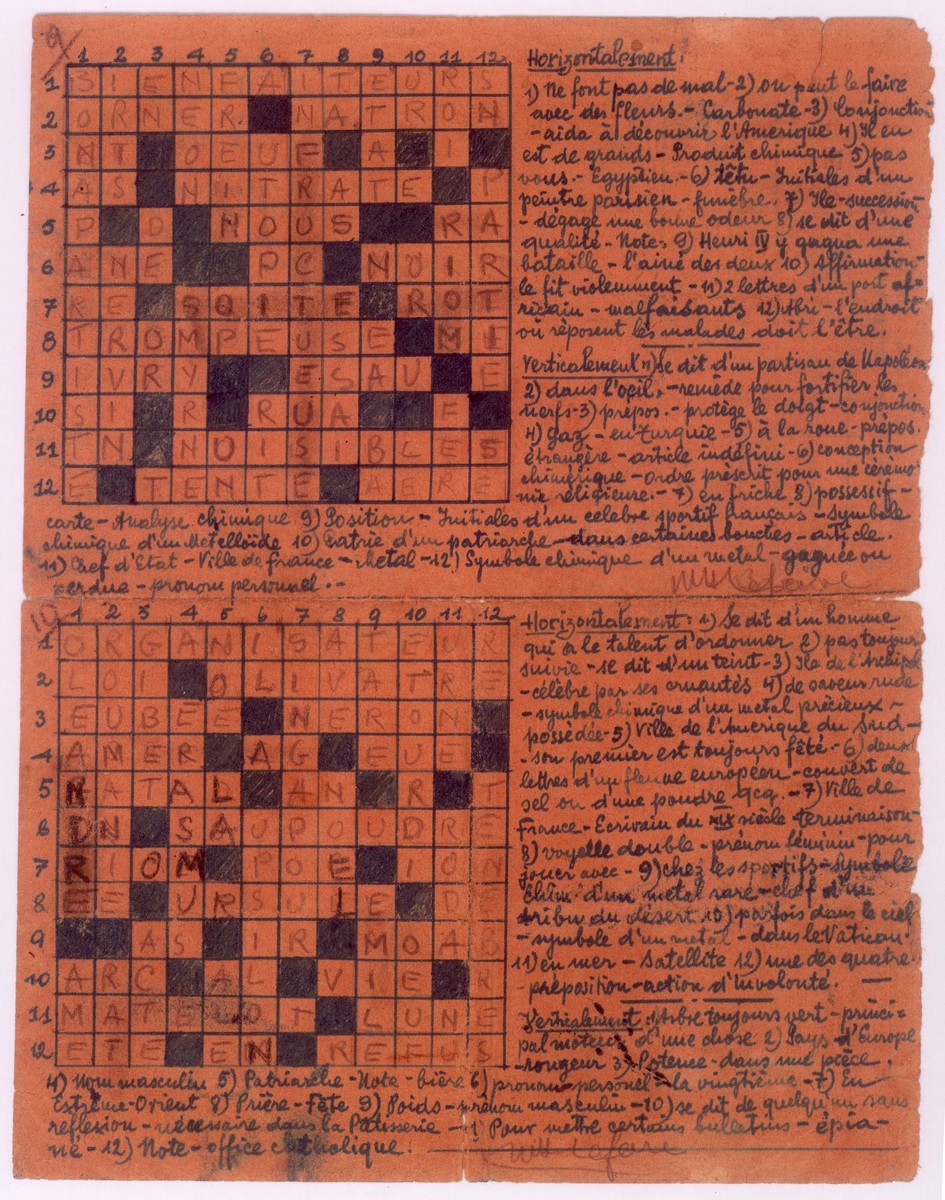 9
1 2 3 4 5 6 7 8 9 10 11 12
1 BIENFAITEURS
2 ORNER NATRON
3 NT OEUF A I
4 AS NITRATE P
5 P D NOUS RA
6 ANE PC NOIR
7 RE SOITE ROT
8 TROMPEUSE MI
9 IVRY ESAU E
10 SI R RUA E
11 TN NUISIBLES
12 E TENTE AERE
Horizontalement:
1) Ne font pas de mal - 2) on peut le faire
avec des fleurs. - Carbonate - 3) Conjonction
- aida à découvrir l'Amerique 4) Il en
est de grands - Produit chimique 5) pas
vous. - Egyptien. - 6) têtu - Initiales d'un
peintre parisien - funèbre. 7) Ile - succession
- dégage une bonne odeur 8) se dit d'une
qualité - Note. 9) Henri IV y gagna une
bataille - l'ainé des deux 10) Affirmation -
le fit violemment - 11) 2 lettres d'un port af-
ricain - malfaisants 12) Abri - l'endroit
où reposent les malades doit l'être.
Verticalement 1) se dit d'un partisan de Napoléon
2) dans l'oeil, - remède pour fortifier les
nerfs - 3) prépos. - protège le doigt - conjonction
4) Gaz - en Turquie - 5) à la roue - prépos.
étrangère - article indéfini - 6) conception
chimérique - ordre préscrit pour une cérémo
nie réligieuse. - 7) en friche 8) possessif -
carte - Analyse chimique 9) Position - Initiales d'un célebre sportif français - symbole
chimique d'un Metelloïde 10) Patrie d'un patriarche - dans certaines bouches - article.
11) Chef d'Etat - Ville de france - Metal - 12) Symbole chimique d'un metal - gagnée ou
perdue - pronom personnel. -
10
1 2 3 4 5 6 7 8 9 10 11 12
1 ORGANISATEUR
2 LOI OLIVATRE
3 EUBEE NERON
4 AMER AG EUE
5 NATAL AN R T
6 DN SAUPOUDRE
7 RIOM POE ION
8 EE URSULE DE
9 AS IR MOAB
10 ARC AL VIE R
11 MATELOT LUNE
12 ETE EN REFUS
Horizontalement: 1) Se dit d'un homme
qui a le talent d'ordonner 2) pas toujour
suivie - se dit d'un teint - 3) Ile de l'Archipel
- célèbre par ses cruautés 4) de saveur rude
- symbole chimique d'un metal précieux -
possédée - 5) Ville de l'Amerique du Sud -
- son premier est toujours fêté - 6) deux
lettres d'un fleuve européen - couvert de
sel ou d'une poudre qcq. - 7) Ville de
France - Ecrivain du XIX siècle - terminaison -
8) voyelle double - prénom féminin - pour
jouer avec - 9) chez les sportifs - symbole
chim. d'un metal rare - chef d'un
tribu du désert 10) parfois dans le ciel
- symbole d'un metal - dans le Vatican
11) en mer - Satellite 12) une des quatre -
préposition - action d'involonté.
Verticalement 1) Arbre toujours vert - princi =
pal moteur d'une chose 2) Pays d'Europe
- rongeur 3) Potence - dans une pièce.
4) Nom masculin 5) Patriarche - Note - bière 6) pronom personnel - la vingtième - 7) En
Extrême-Orient 8) Prière - Fête 9) Poids - prénom masculin - 10) se dit de quelqu'un sans
réflexion - nécessaire dans la Patisserie - 11) Pour mettre certains bulletins - épia-
né - 12) Note - office catholique.